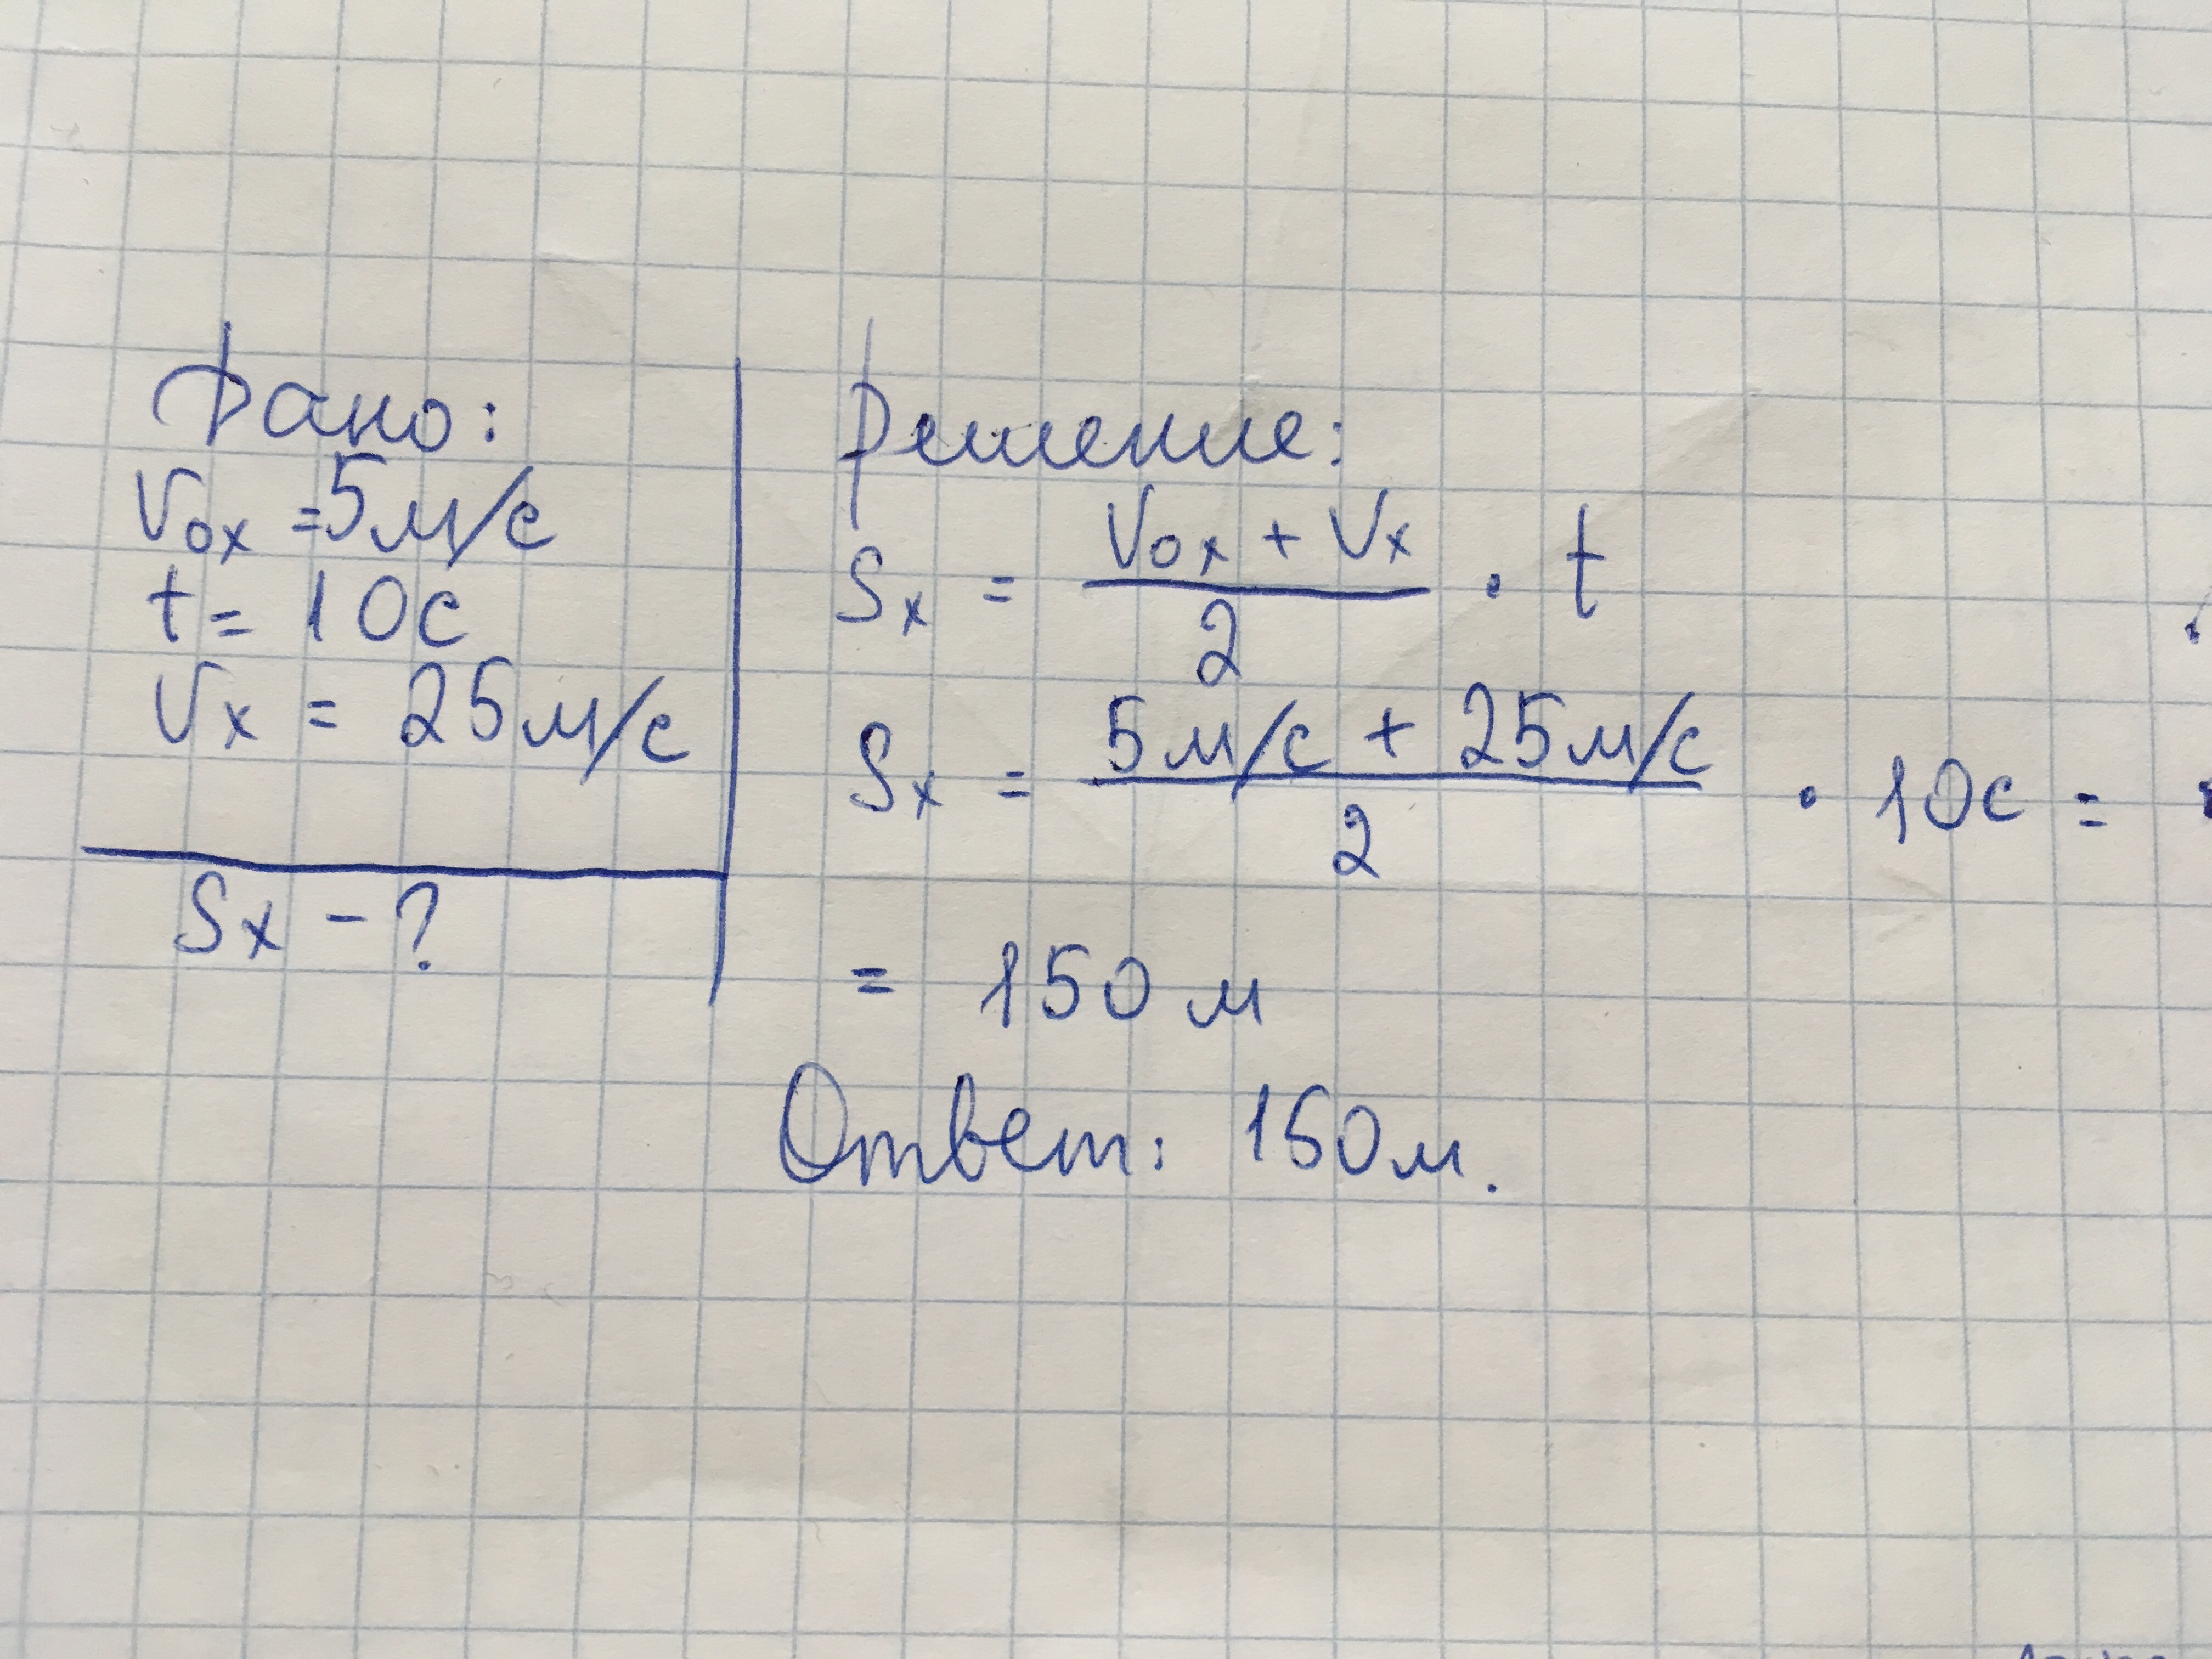 Дано:
V₀ₓ = 5 м/с
t = 10 с
Vₓ = 25 м/с
Sₓ - ?
Решение:
Sₓ = (V₀ₓ + Vₓ)/2 · t
Sₓ = (5 м/с + 25 м/с)/2 · 10 с =
= 150 м
Ответ: 150 м.